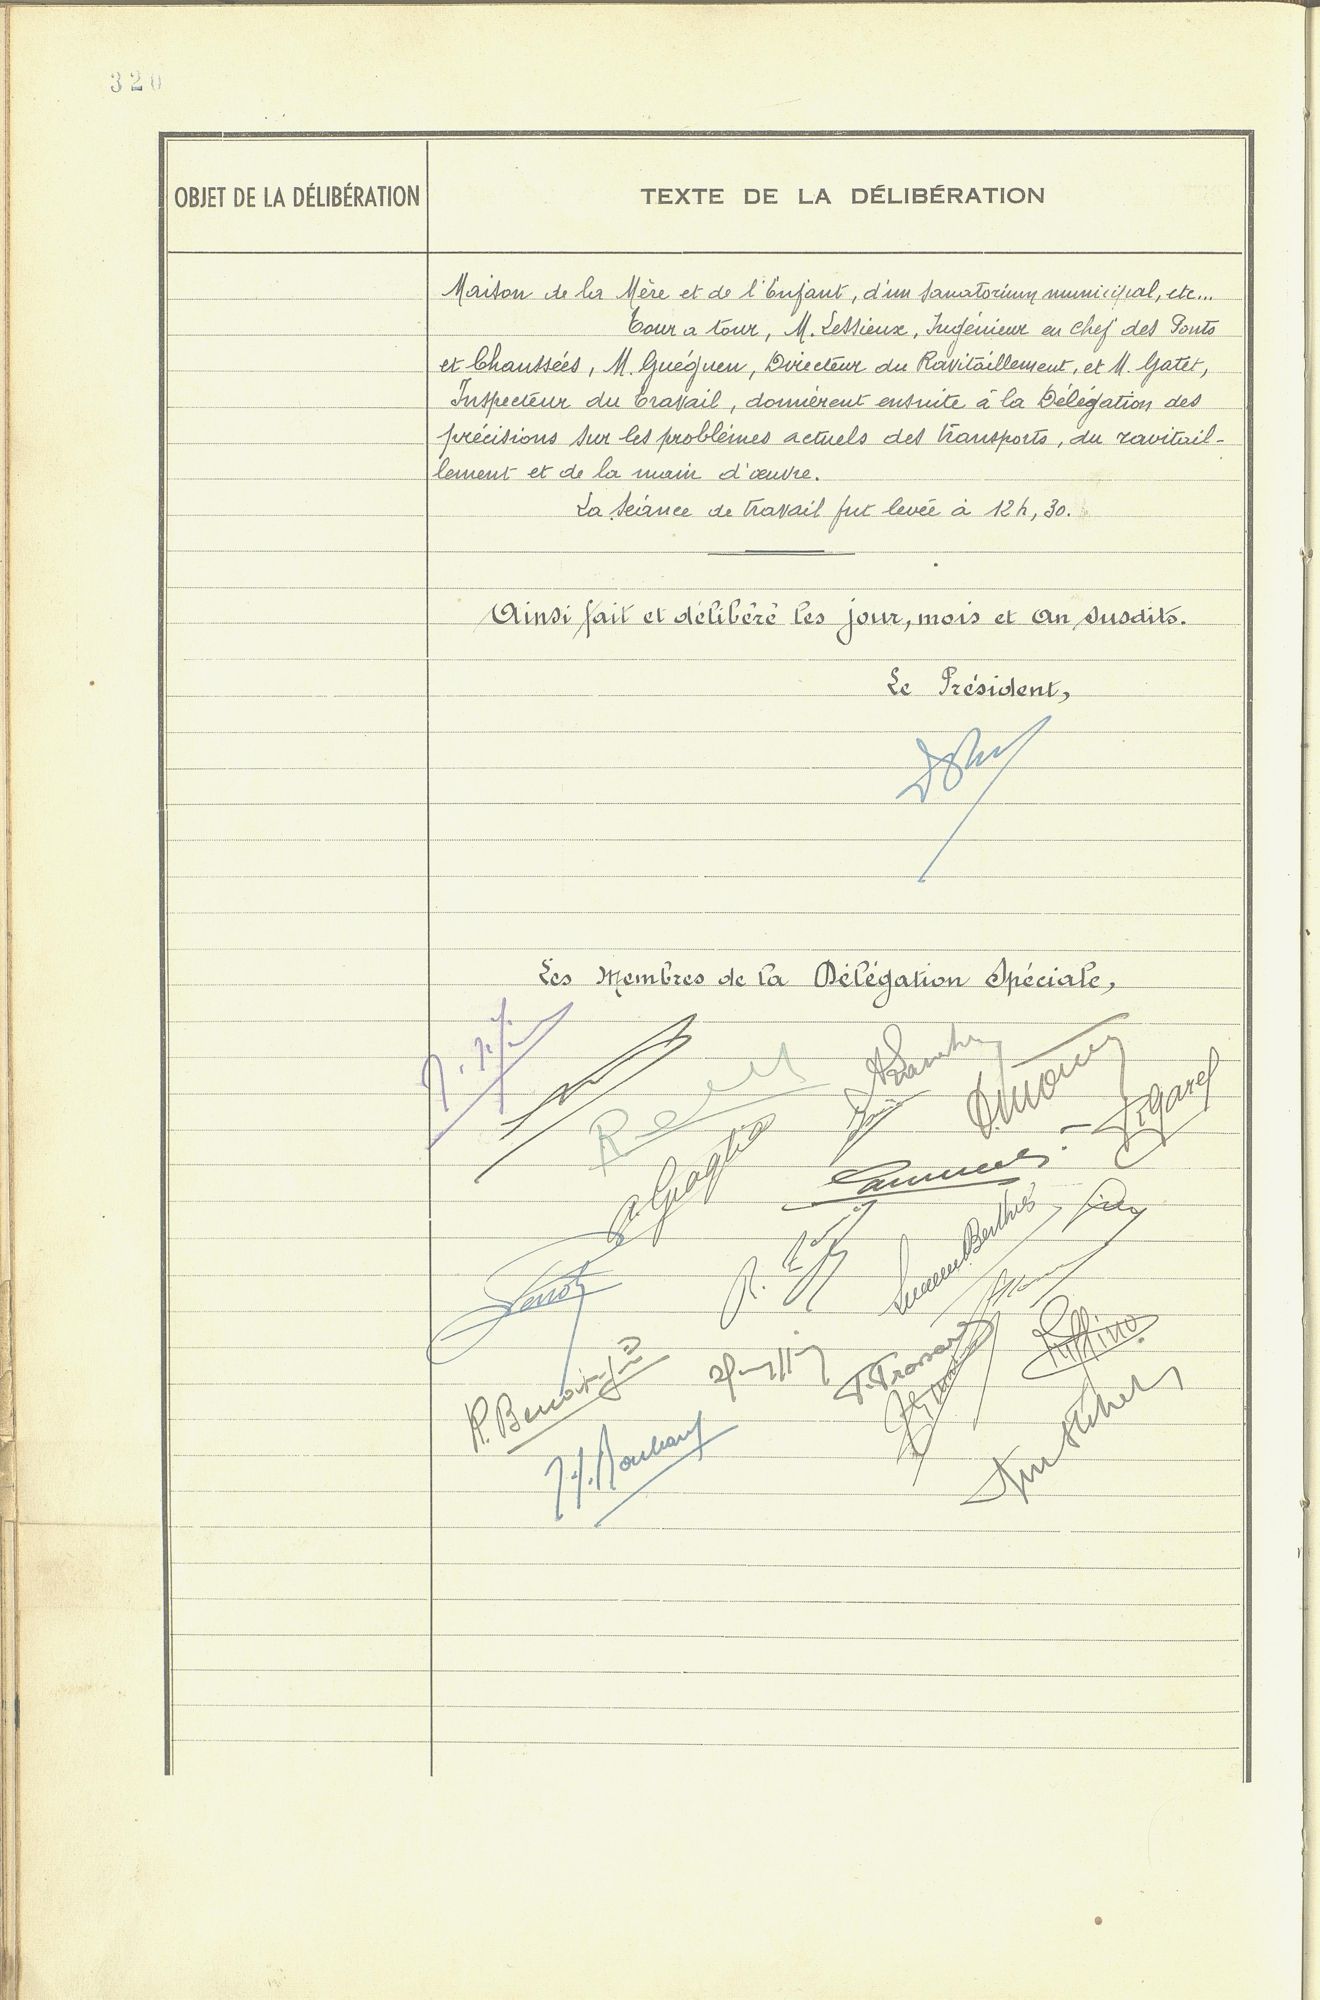 320
OBJET DE LA DÉLIBÉRATION
TEXTE DE LA DÉLIBÉRATION
Maison de la Mère et de l'Enfant, d'un sanatorium municipal, etc...
Tour a tour, M. Lessieux, Ingénieur en chef des Ponts
et Chaussées, M. Guéguen, Directeur du Ravitaillement, et M. Gatet,
Inspecteur du Travail, donnèrent ensuite à la Délégation des
précisions sur les problèmes actuels des transports, du ravitail-
lement et de la main d'œuvre.
La séance de travail fut levée à 12h,30.
Ainsi fait et délibéré les jour, mois et an susdits.
Le Président,
Les Membres de la Délégation Spéciale,
Figarel
a. Giaglia
Suzanne Berthier
Ruffino
R. Benoit